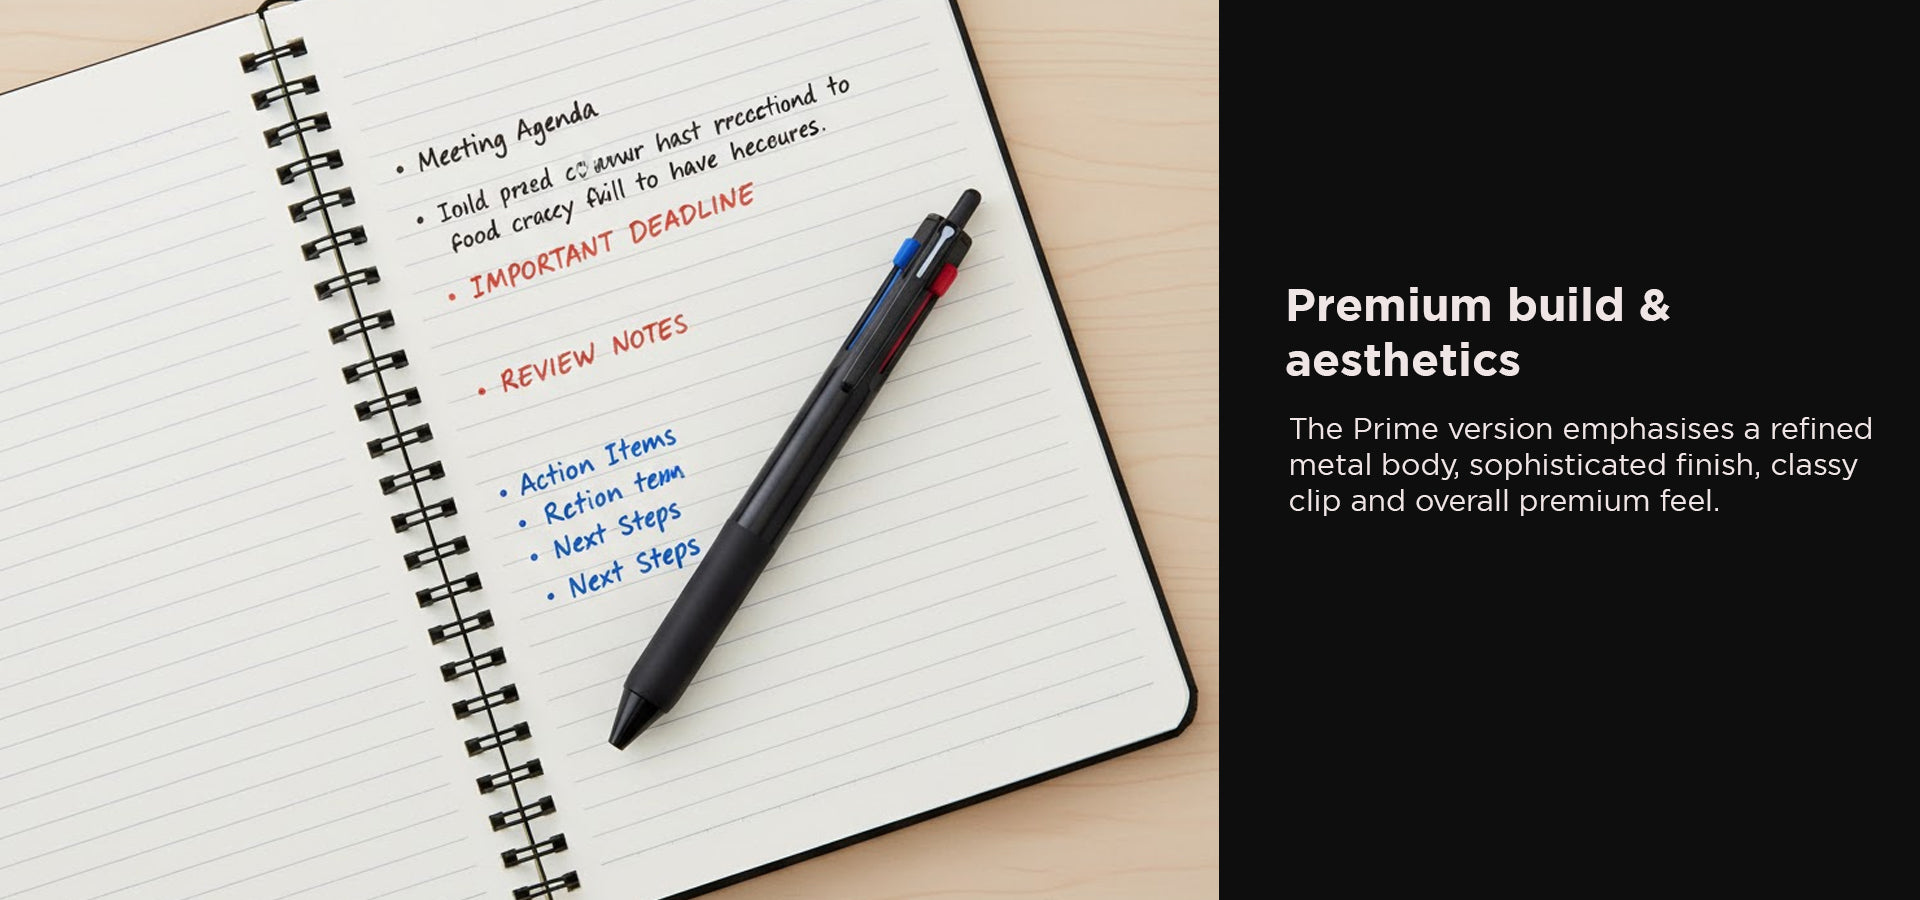 • Meeting Agenda
• hast to
food to have
• IMPORTANT DEADLINE
• REVIEW NOTES
• Action Items
• Rction
• Next Steps
• Next Steps
Premium build &
aesthetics
The Prime version emphasises a refined
metal body, sophisticated finish, classy
clip and overall premium feel.